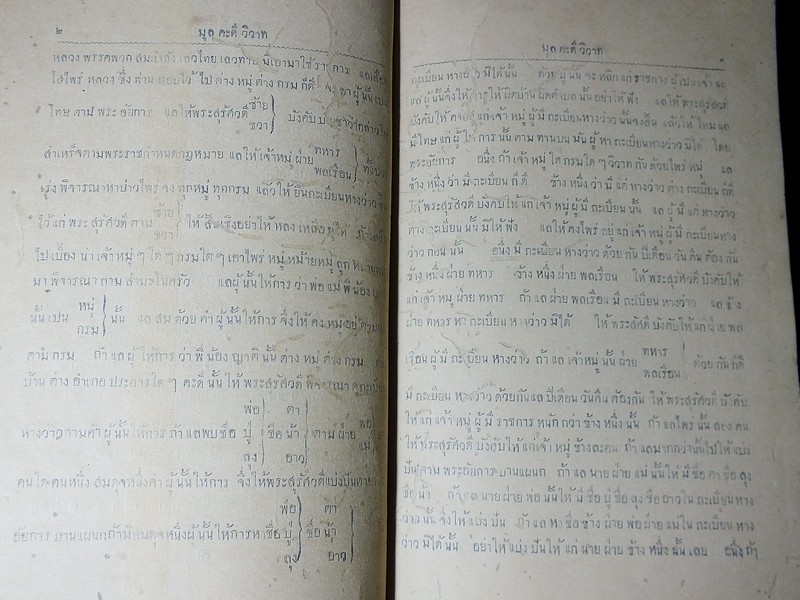 ๒ มูล คะดี วิวาท
หลวง พรรคพวก สมกำลัง เลวไทย เลวทาษ มีเอามาใช้ราชการ แล
ใส่ไพร่ หลวง ซึ่ง ท่าน ไป ต่าง หมู่ ต่าง กรม ก็ดี ผู้ นั้น
โทษ ตาม พระ อัยการ แลให้พระสุรัศวดี ซ้าย ขวา บังคับ
สำเหร็จตามพระราชกำหนดกฎหมาย แล ให้ เจ้าหมู่ ฝ่าย ทหาร พลเรือน ทั้งปวง
พิจารณาหาบ่าวไพร่ ทุกหมู่ ทุกกรม แล้ว ให้ ยื่นทะเบียนหางว่าว
ไว้ แก่ พระ สุรัศวดี ตาม ซ้าย ขวา ให้ สิ้นเชิงอย่าให้ หลง เหลืออยู่ได้
ไปเบื้อง น่า เจ้าหมู่ ๆ ใด ๆ กรมใด ๆ เอาไพร่ หมู่ หม้ายหมู่ ลูก
มา พิจารณา ตาม สำมะโนครัว แลผู้ นั้นให้การ ว่า พ่อ แม่ พี่ น้อง
นั้น เปน หมู่ กรม นั้น แล สม ด้วย คำ ผู้ นั้นให้การ จึ่งให้ คง หมู่อยู่
ตาม กรม ถ้า แล ผู้ ให้การ ว่า พี่ น้อง ญาติ นั้น ต่าง หมู่ ต่าง กรม
บ้าน ต่าง อำเภอ ประการใด ๆ คะดี นั้น ให้ พระสุรัศวดี พิจารณา ดูทะเบียน
หางว่าวตามคำ ผู้ นั้นให้การ ถ้า แลพบชื่อ พ่อ ปู่ ลุง ชื่อ ตา น้า อาว ตาม ฝ่าย พ่อ แม่
คนใดคนหนึ่ง สมดุจหนึ่งคำ ผู้ นั้นให้การ จึ่งให้พระสุรัศวดีแบ่งปันตาม
อัยการ บานแผนก ถ้ามิสมดุจหนึ่งผู้ นั้นให้การหาชื่อ พ่อ ปู่ ลุง ชื่อ ตา น้า อาว
มูล คะดี วิวาท
ทะเบียน หางว่าว มิได้ นั้น ด้วย ผู้ นั้น จะ หลีก แก่ ราชการ ผู้ เปน เจ้า
แล ผู้ นั้นจึ่งให้ การให้ ผิดบ้าน ผิดตำบล นั้น อย่า ให้ ฟัง แลให้ พระสุรัศวดี
บังคับให้ แก่ เจ้า หมู่ ผู้ มี ทะเบียน หางว่าว นั้นจงสิ้น แล้วให้ ไหม แล
มีโทษ แก่ ผู้ ให้ การ นั้น ตาม ผู้ หา ทะเบียนหางว่าว มิ ได้ โดย
พระอัยการ อนึ่ง ถ้า เจ้า หมู่ ใด กรมใด ๆ วิวาท กัน ด้วยไพร่ หมู่ แล
ข้าง หนึ่ง ว่า มี ทะเบียน ก็ ดี ข้าง หนึ่ง ว่า มี แต่ หางว่าว ต่าง ทะเบียน ก็ดี
ให้ พระสุรัศวดี บังคับให้ แก่ เจ้า หมู่ ผู้ มี ทะเบียน นั้น แล ผู้ มี แต่ หางว่าว
ต่าง ทะเบียน นั้น มิให้ ฟัง แลให้ คงไพร่ อยู่ แก่ เจ้า หมู่ ผู้ มี ทะเบียนหาง
ว่าว ก่อน นั้น อนึ่ง มี ทะเบียน หางว่าว ด้วย กัน ปีเดือน วัน คืน ต้อง กัน
ข้าง หนึ่ง ฝ่าย ทหาร ข้าง หนึ่ง ฝ่าย พลเรือน ให้ พระสุรัศวดี บังคับให้
แก่ เจ้า หมู่ ฝ่าย ทหาร ถ้า แล ฝ่าย พลเรือน มี ทะเบียน หางว่าว แล ข้าง
ฝ่าย ทหาร หา ทะเบียน หางว่าว มิได้ ให้ พระสุรัศวดี บังคับให้ แก่ ฝ่าย พล
เรือน ผู้ มี ทะเบียน หางว่าว ถ้า แล เจ้าหมู่ นั้น ฝ่าย ทหาร พลเรือน ด้วย กัน ก็ดี
มี ทะเบียน หางว่าว ด้วยกันแล ปีเดือน วันคืน ต้องกัน ให้ พระสุรัศวดี บังคับ
ให้ แก่ เจ้า หมู่ ผู้ มี ราชการ หนัก กว่า ข้าง หนึ่ง นั้น ถ้า แลไพร่ นั้น สอง คน
ให้ พระสุรัศวดี บังคับให้ แก่ เจ้า หมู่ ข้างละคน ถ้า แลมากกว่านั้นไปให้ แบ่ง
ปัน ตาม พระอัยการ บานแผนก ถ้า แล นาย ฝ่าย แม่ นั้น ให้ มี ชื่อ ตา ชื่อ ลุง
ชื่อ น้า ถ้า แล นาย ฝ่าย พ่อ นั้นให้ มี ชื่อ ปู่ ชื่อลุง ชื่ออาวใน ทะเบียน หาง
ว่าว นั้น จึ่งให้ แบ่ง ปัน ถ้า แล หา ชื่อ ข้าง ฝ่าย พ่อ ฝ่าย แม่ใน ทะเบียน หาง
ว่าว มิได้ นั้น อย่าให้ แบ่ง ปันให้ แก่ นาย ฝ่าย ข้าง หนึ่ง นั้น เลย อนึ่ง ถ้า